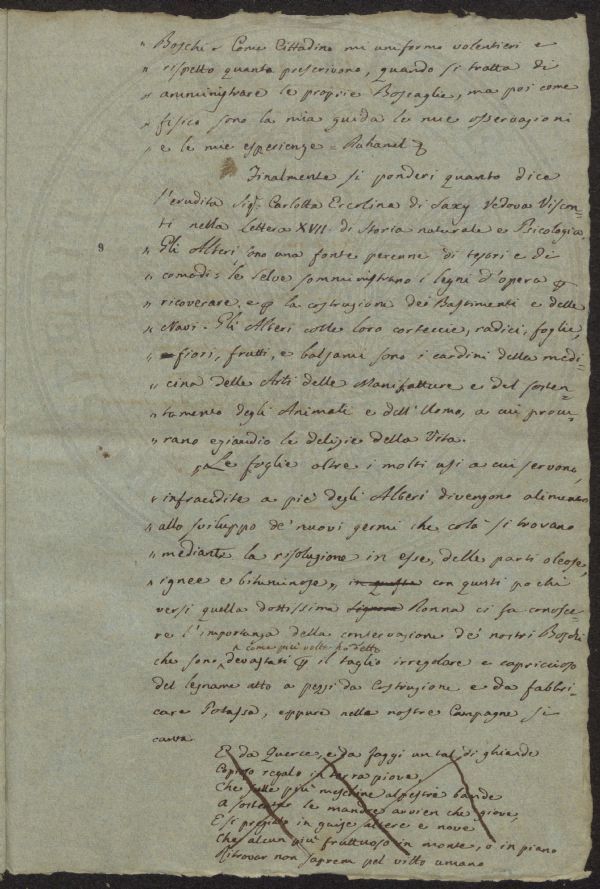 " Boschi. Come Cittadino mi uniformo volentieri e
" rispetto quanto prescrivono, quando si tratta di
" amministrare le proprie Boscaglie, ma poi come
" fisico sono la mia guida le mie osservazioni
" e le mie esperienze =
Finalmente si ponderi quanto dice
l'erudita Sig. Carlotta Ercolina di Saxy Vedova Viscon-
ti nella Lettera XVII. di Storia naturale e Psicologica.
" Gli Alberi sono una fonte perenne di tesori e di
" comodi: le selve somministrano i legni d'opera ꝑ
" ricoverare, e ꝑ la costruzione dei Bastimenti e delle
" Navi. Gli Alberi colle loro corteccie, radici, foglie,
" fiori, frutti, e balsami sono i cardini della medi-
" cina delle Arti delle Manifatture e del sosten-
" tamento degli Animali e dell'Uomo, a cui procu-
" rano eziandio le delizie della Vita.
" Le foglie oltre i molti usi a cui servono,
" infracidite a piè degli Alberi divengono alimento
" allo sviluppo de' nuovi germi che colà si trovano
" mediante la risoluzione in esse, delle parti oleose,
" ignee e bituminose „ in queste con questi pochi
versi quella dottissima Signora Donna ci fa conosce-
re l'importanza della conservazione de' nostri Boschi
come più volte ho detto
che sono devastati ꝑ il taglio irregolare e capriccioso
del legname atto a pezzi da Costruzione e da fabbri-
care Potassa, eppure nelle nostre Campagne si
canta
E da Querce, e da Faggi un tal di ghiande
Copioso regalo in terra piove,
Che sulle più meschine alpestri bande
A sostener le mandre avvien che giove,
E si pregiato in guise altere e nove
Che alcun più fruttuoso in monte, o in piano
Ritrovar non saprem pel vitto umano